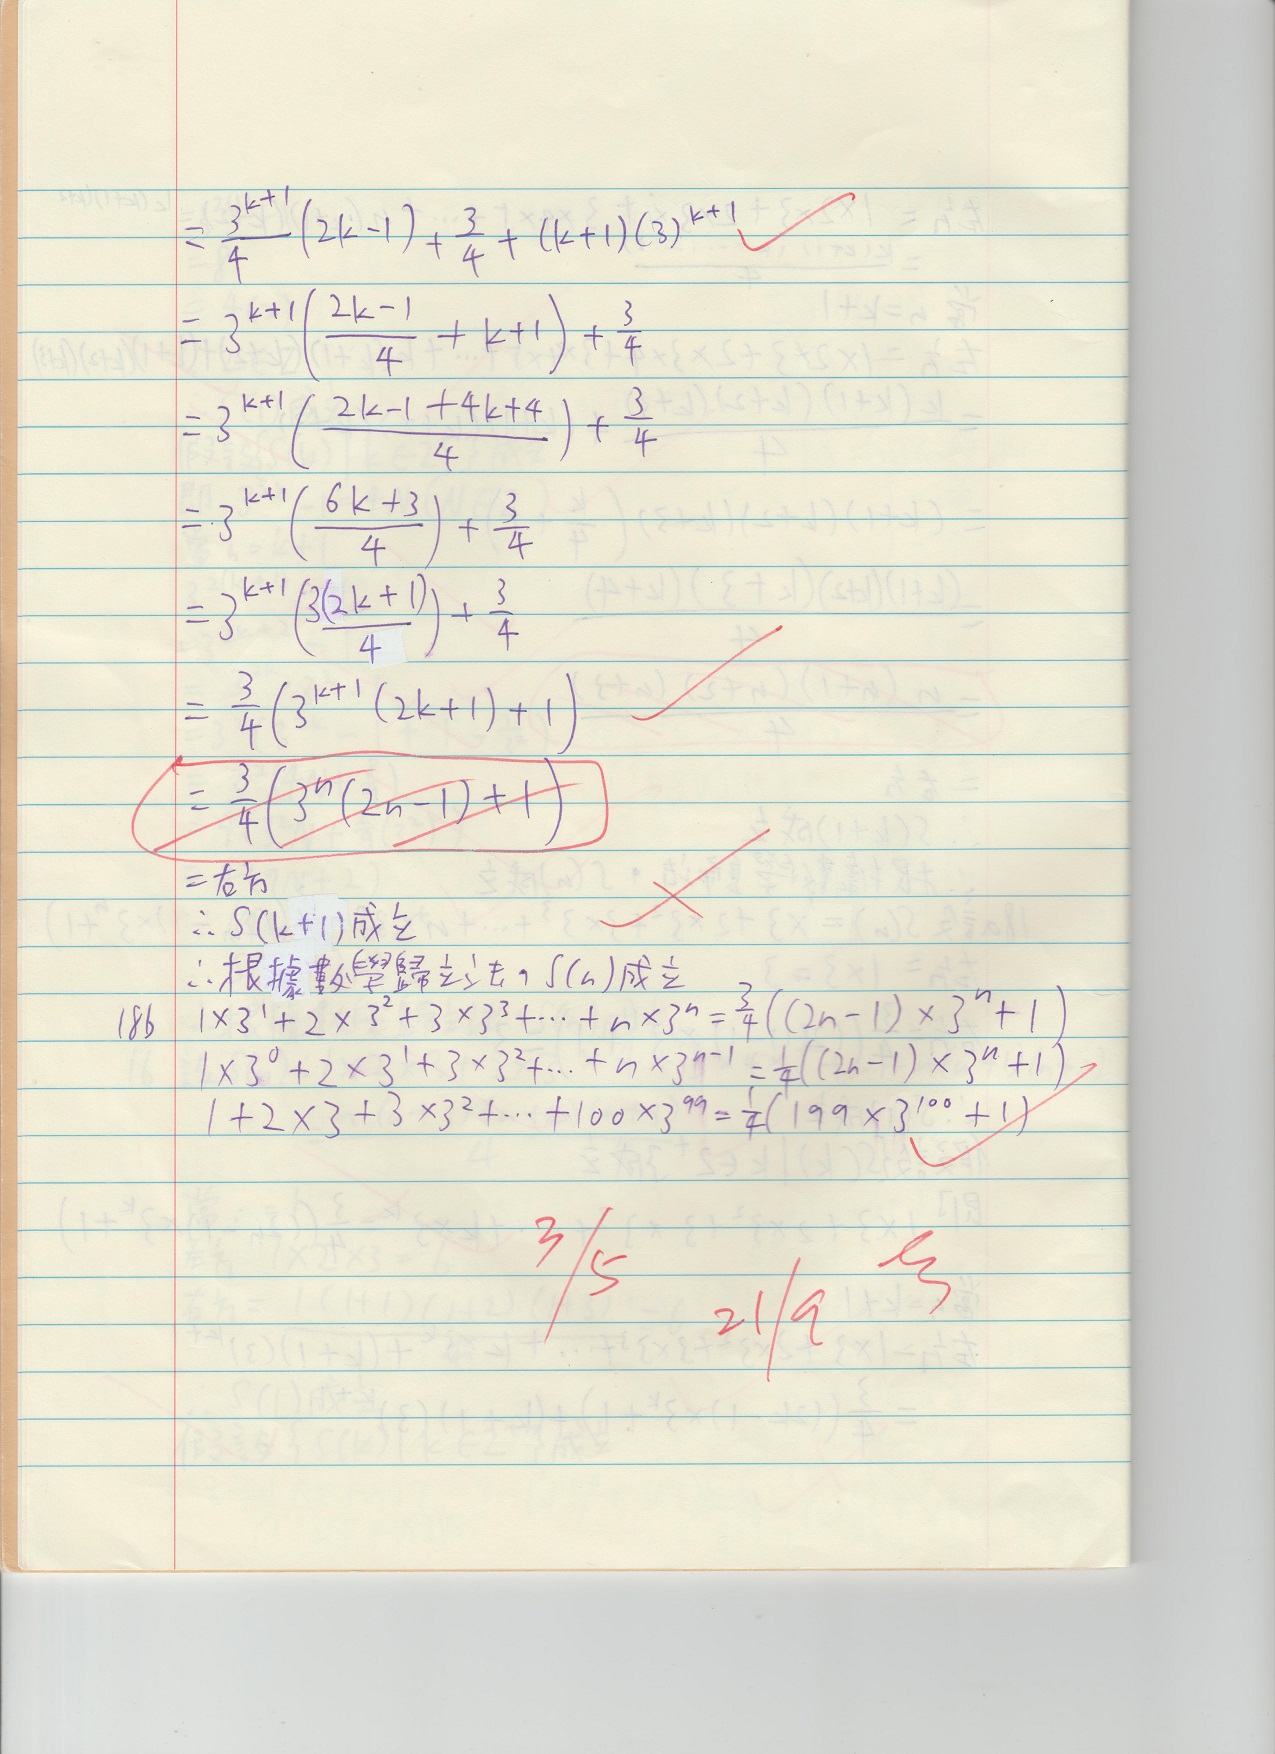 = 3^{k+1}/4 (2k-1) + 3/4 + (k+1)(3)^{k+1}
= 3^{k+1} ( (2k-1)/4 + k+1 ) + 3/4
= 3^{k+1} ( (2k-1+4k+4)/4 ) + 3/4
= 3^{k+1} ( (6k+3)/4 ) + 3/4
= 3^{k+1} ( 3(2k+1)/4 ) + 3/4
= 3/4 ( 3^{k+1} (2k+1) + 1 )
= 3/4 ( 3^n (2n-1) + 1 )
= 右方
∴ S(k+1)成立
∴根據數學歸立法,S(n)成立
18b 1×3^1+2×3^2+3×3^3+…+n×3^n = 3/4((2n-1)×3^n+1)
1×3^0+2×3^1+3×3^2+…+n×3^{n-1} = 1/4((2n-1)×3^n+1)
1+2×3+3×3^2+…+100×3^{99} = 1/4(199×3^{100}+1)
3/5
21/9